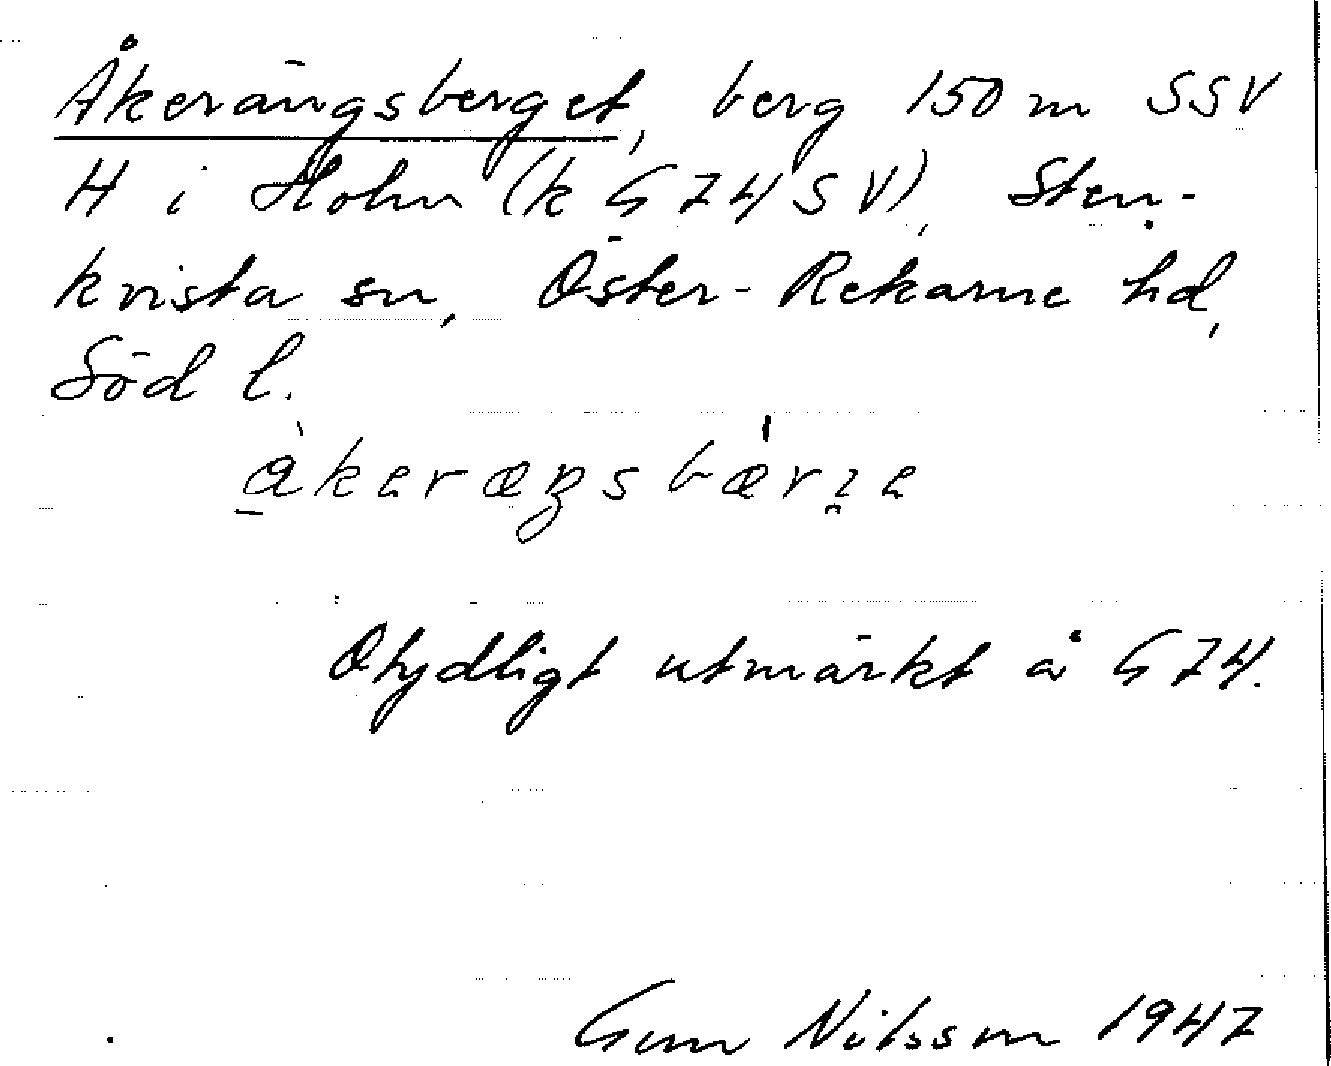 Åkerängsberget, berg 150 m SSV
H i Holm (k G 74 SV), Sten-
kvista sn, Öster-Rekarne hd,
Söd l.
å̀keræŋsbæŕɂe
Otydligt utmärkt å G 74.
Gun Nilsson 1947